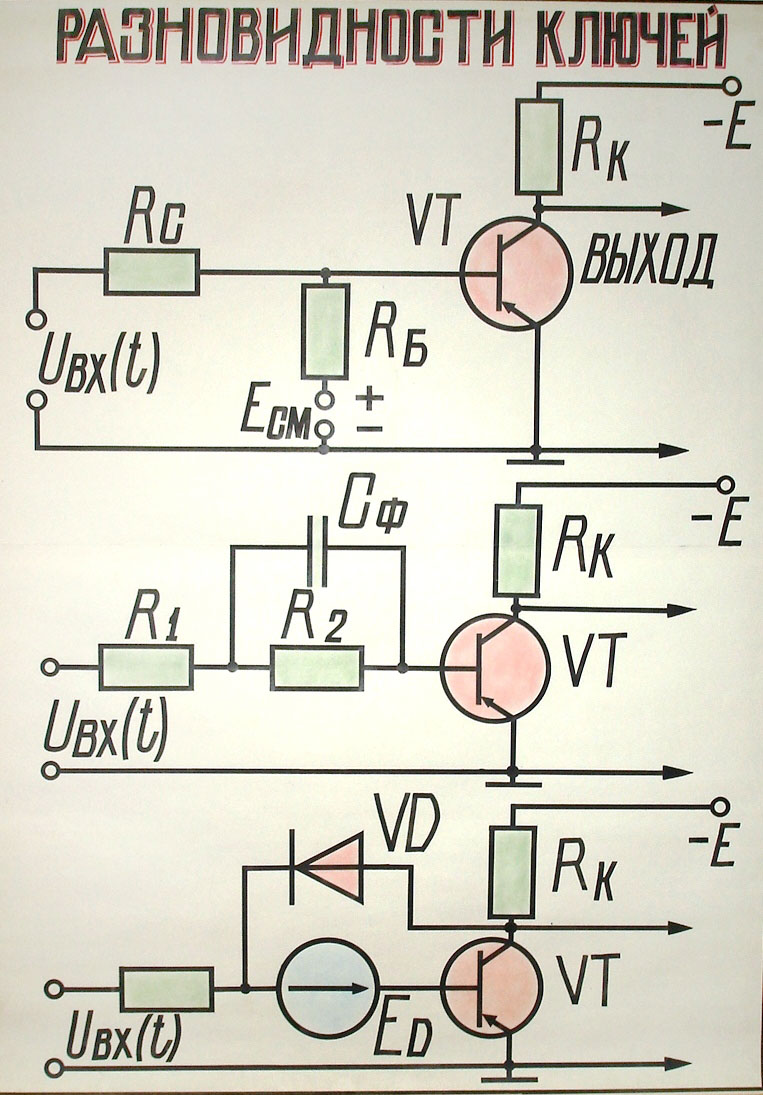 РАЗНОВИДНОСТИ КЛЮЧЕЙ
-E
RК
RС
VT
ВЫХОД
UВХ(t)
RБ
EСМ
+
−
CФ
-E
RК
R1
R2
VT
UВХ(t)
VD
-E
RК
VT
UВХ(t)
ED